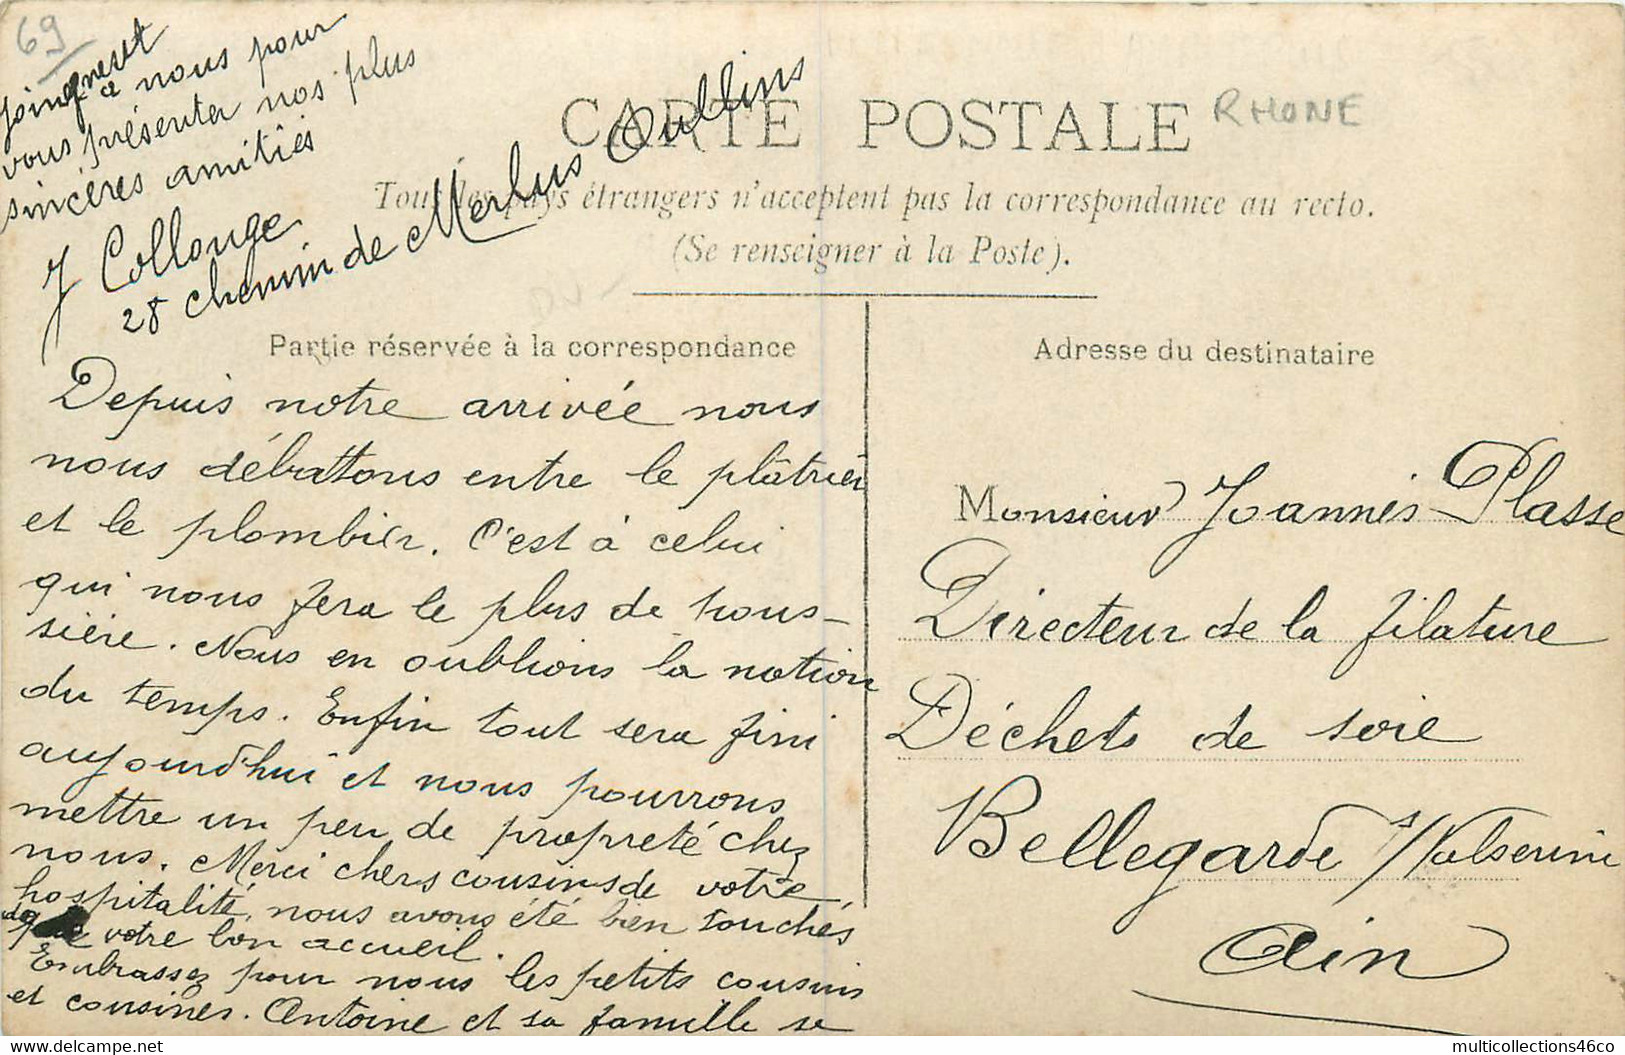 69
joignent
à nous pour
vous présenter nos plus
sincères amitiés
J Collonge
28 chemin de Merlus Oullins
CARTE POSTALE
RHONE
Tous les pays étrangers n'acceptent pas la correspondance au recto.
(Se renseigner à la Poste).
Partie réservée à la correspondance
Depuis notre arrivée nous
nous débattons entre le plâtrier
et le plombier. C'est à celui
qui nous fera le plus de pous-
sière. Nous en oublions la notion
du temps. Enfin tout sera fini
aujourd'hui et nous pourrons
mettre un peu de propreté chez
nous. Merci chers cousins de votre
hospitalité, nous avons été bien touchés
de votre bon accueil.
Embrassez pour nous les petits cousins
et cousines. Antoine et sa famille se
Adresse du destinataire
Monsieur Joannès Plasse
Directeur de la filature
Déchets de soie
Bellegarde s/Valserine
Ain
www.delcampe.net
multicollections46co